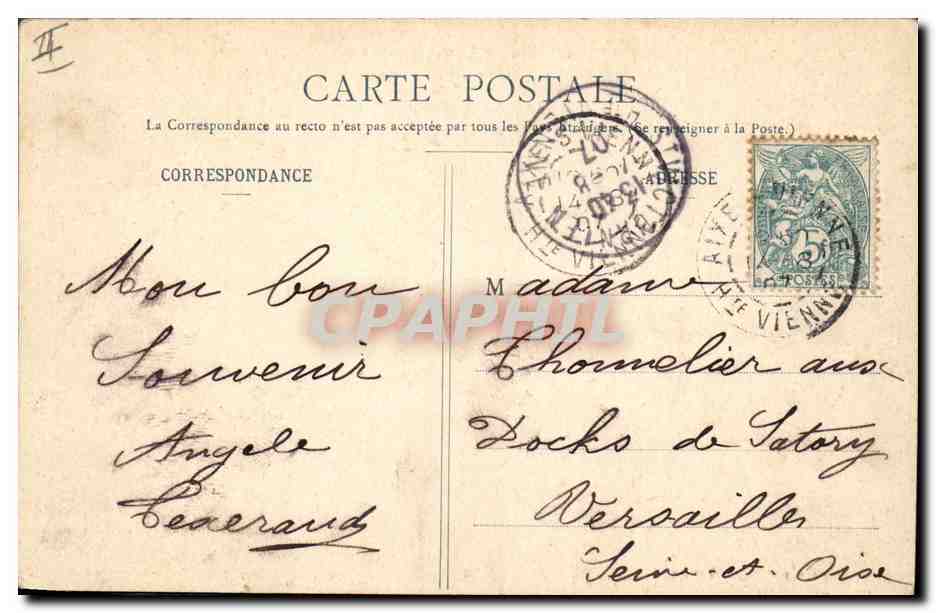 II
CARTE POSTALE
La Correspondance au recto n'est pas acceptée par tous les Pays Étrangers. (Se renseigner à la Poste.)
CORRESPONDANCE
ADRESSE
Mon bon
Souvenir
Angele
Texeraud
Madame
Thonnelier aux
Docks de Satory
Versailles
Seine-et-Oise
AIXE
VIENNE
Hte VIENNE
Hte VIENNE
5
POSTES
CPAPHIL